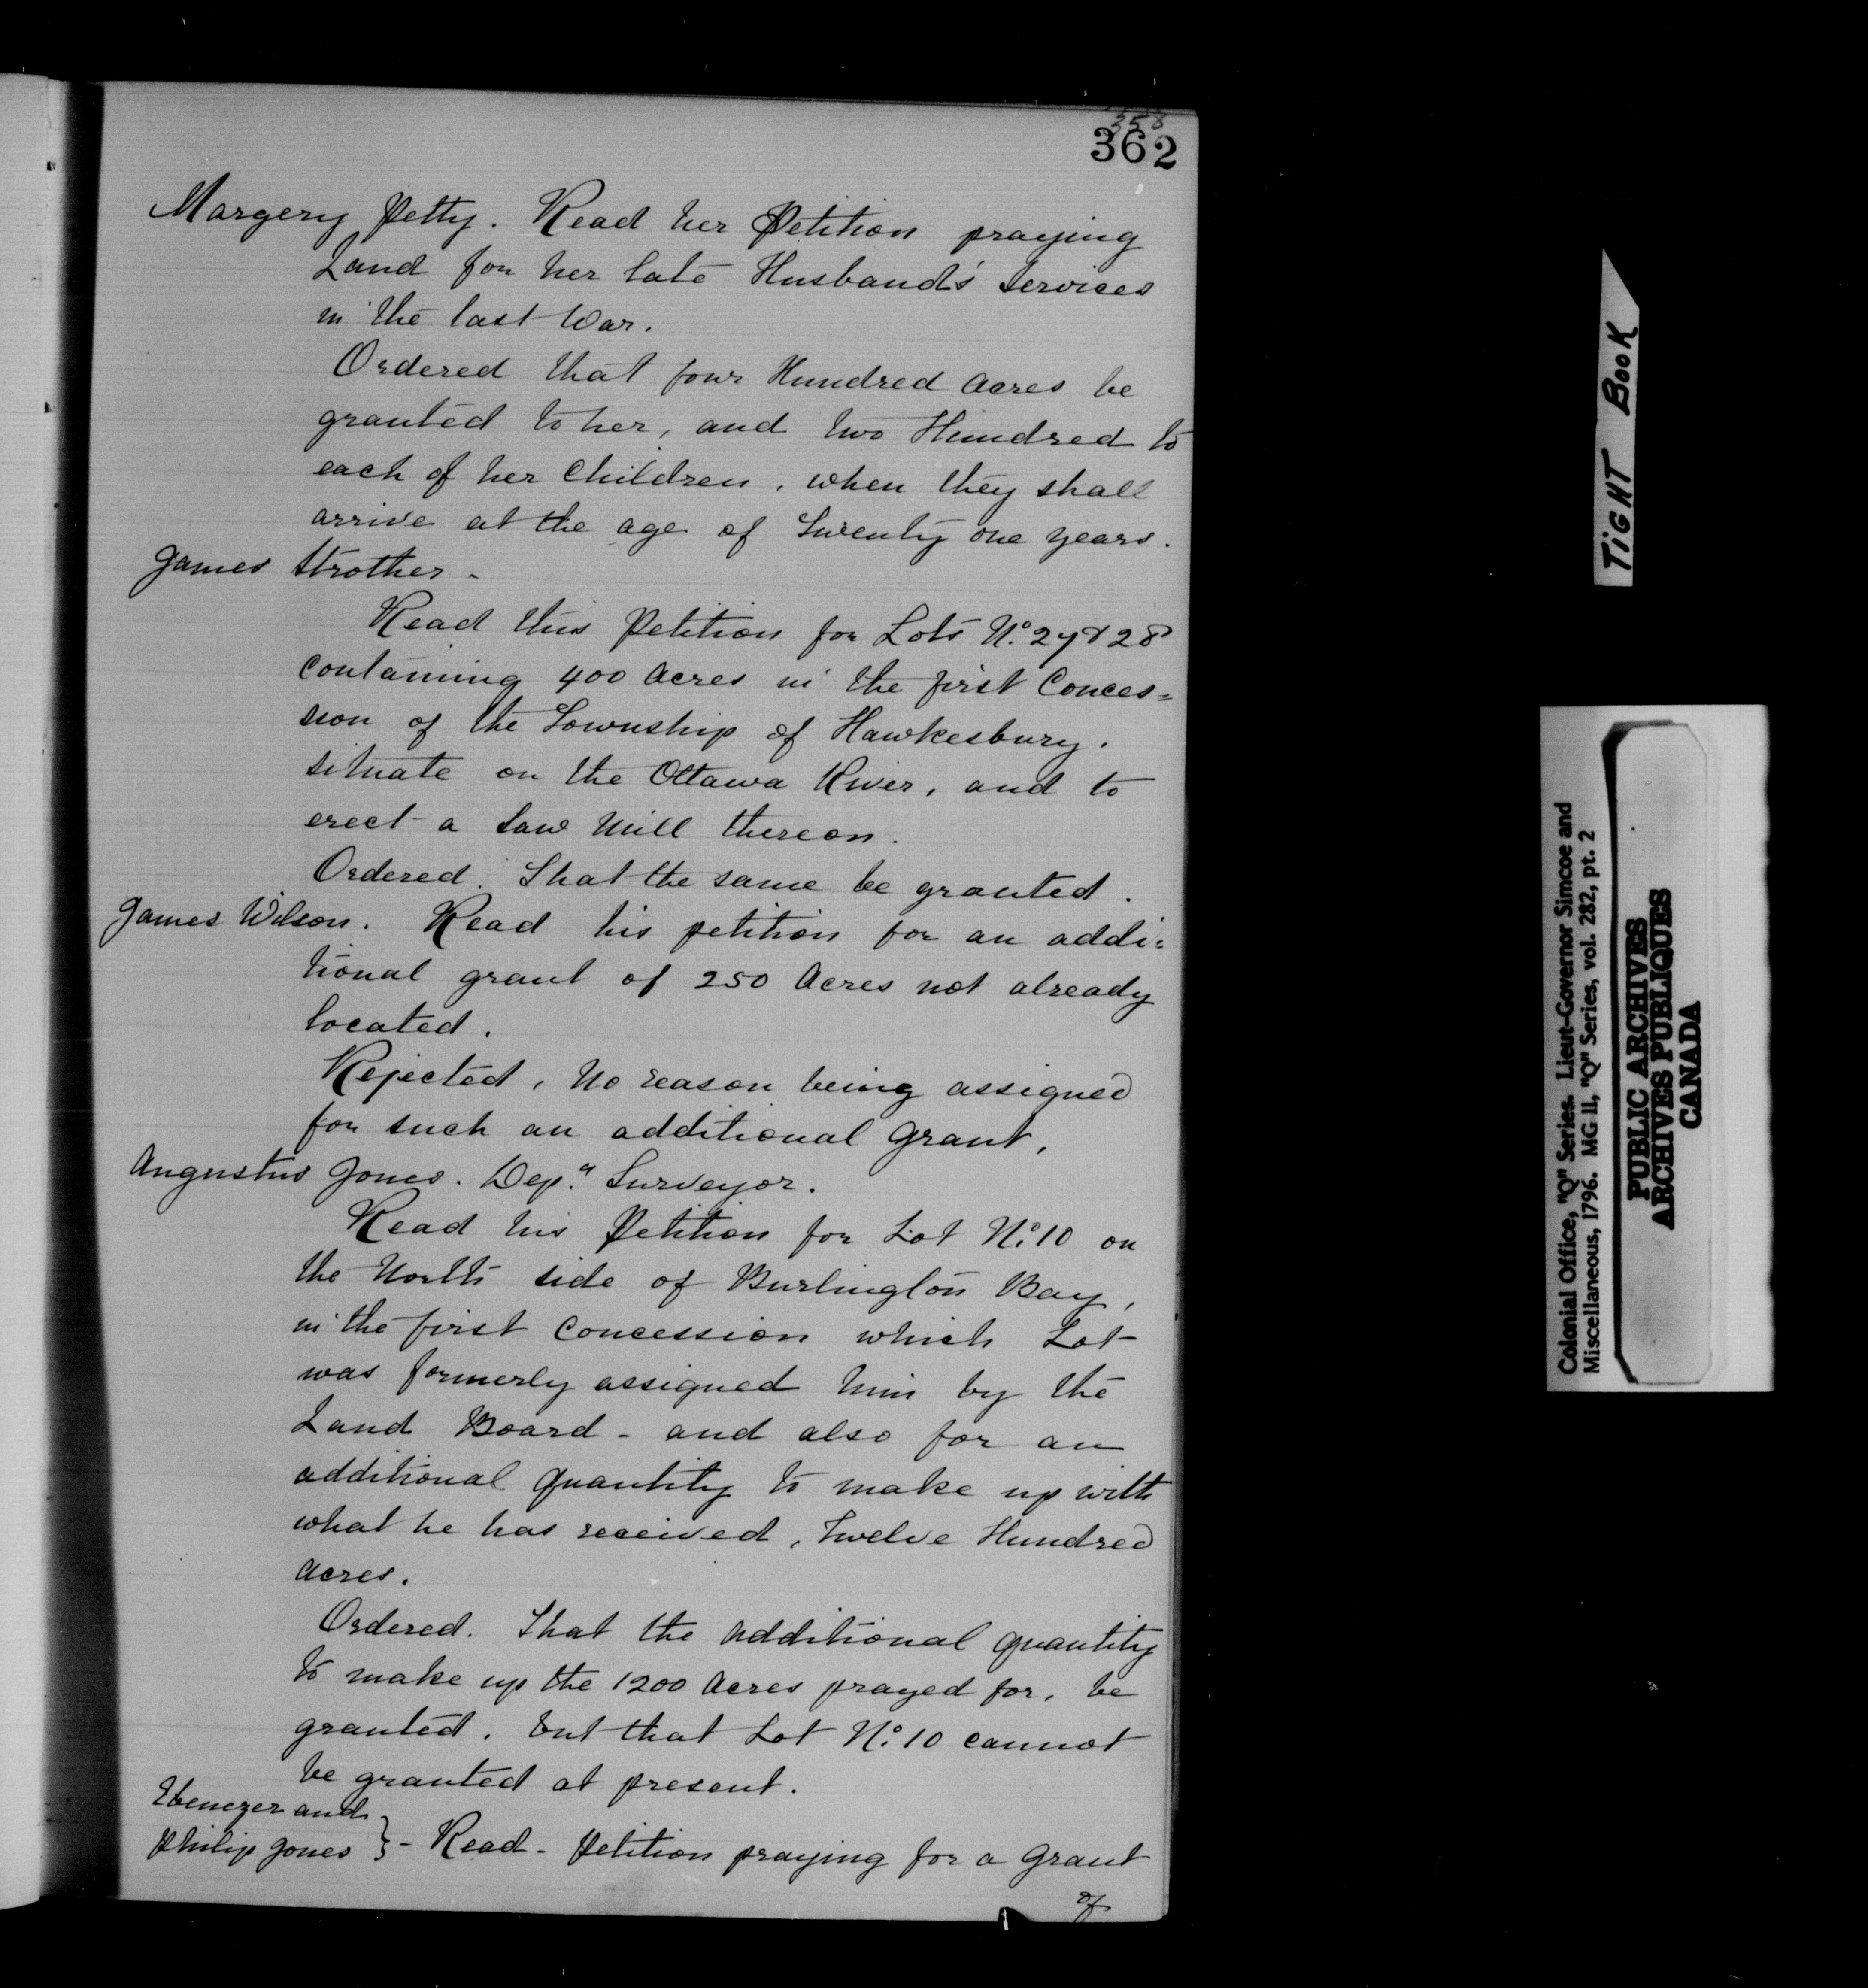 358
362
Margery Petty. Read her Petition praying
Land for her late Husband's Services
in the last War.
Ordered that four Hundred Acres be
granted to her, and two Hundred to
each of her Children, when they shall
arrive at the age of Twenty one years.
James Strother -
Read this Petition for Lots No. 27 & 28
Containing 400 Acres in the first Conces=
sion of the Township of Hawkesbury.
Situate on the Ottawa River, and to
erect a Saw Mill thereon.
Ordered. That the same be granted.
James Wilson. Read his petition for an addi=
tional grant of 250 Acres not already
located.
Rejected, No reason being assigned
for such an additional Grant,
Augustus Jones. Dep.y Surveyor.
Read his Petition for Lot No. 10 on
the North side of Burlington Bay,
in the first Concession which Lot
was formerly assigned him by the
Land Board - and also for an
additional quantity to make up with
what he has received, Twelve Hundred
Acres.
Ordered. That the additional quantity
to make up the 1200 Acres prayed for, be
granted, but that Lot No. 10 cannot
be granted at present.
Ebenezer and
Philip Jones } - Read - Petition praying for a Grant
of
TIGHT BOOK
Colonial Office, "Q" Series. Lieut-Governor Simcoe and
Miscellaneous, 1796. MG 11, "Q" Series, vol. 282, pt. 2
PUBLIC ARCHIVES
ARCHIVES PUBLIQUES
CANADA